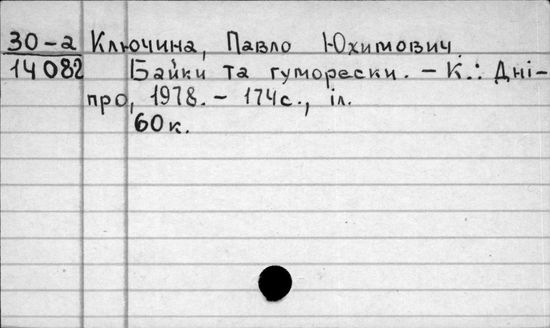 30-а Ключина, Павло Юхимович.
14082 Байки та гуморески. - К.: Дні-
про, 1978. - 174с., іл.
60к.